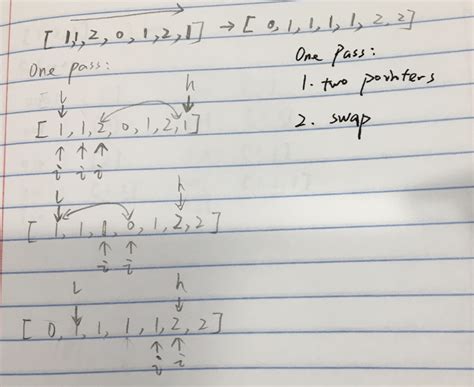 [ 1,1,2,0,1,2,1] → [ 0,1,1,1,1,2,2]
One pass:
One pass:
1. two pointers
2. swap
l h
[ 1,1,2,0,1,2,1]
↑ ↑ ↑
i i i
l h
[ 1,1,1,0,1,2,2]
↑ ↑
i i
l h
[ 0,1,1,1,1,2,2]
↑ ↑
i i